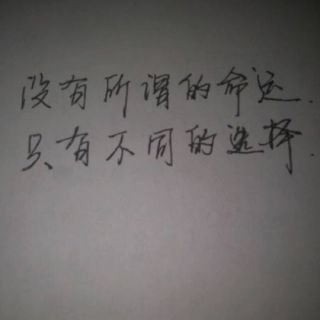 没有所谓的命运.
只有不同的选择.